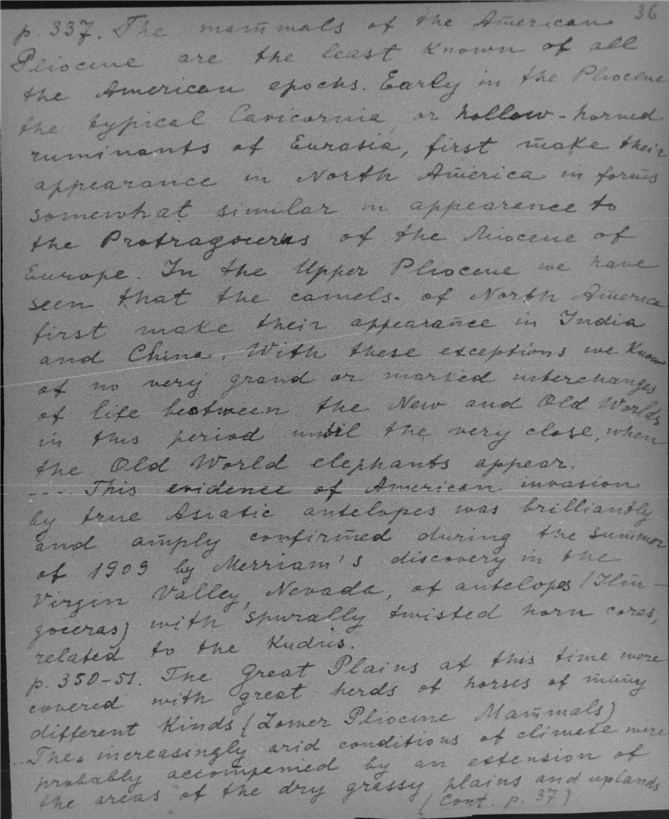 36
p. 337. The mammals of the American
Pliocene are the least known of all
the American epochs. Early in the Pliocene
the typical Cavicornia, or hollow-horned
ruminants of Eurasia, first make their
appearance in North America in forms
somewhat similar in appearance to
the Protragocerus of the Miocene of
Europe. In the Upper Pliocene we have
seen that the camels of North America
first make their appearance in India
and China. With these exceptions we know
of no very grand or marked interchanges
of life between the New and Old Worlds
in this period until the very close, when
the Old World elephants appear.
.... This evidence of American invasion
by true Asiatic antelopes was brilliantly
and amply confirmed during the summer
of 1909 by Merriam's discovery in the
Virgin Valley, Nevada, of antelopes (Ilin-
goceras) with spurally twisted horn cores,
related to the Kudus.
p. 350-51. The Great Plains at this time were
covered with great herds of horses of many
different kinds (Lower Pliocene Mammals)
...The increasingly arid conditions of climate were
probably accompanied by an extension of
the areas of the dry grassy plains and uplands
(Cont. p. 37)